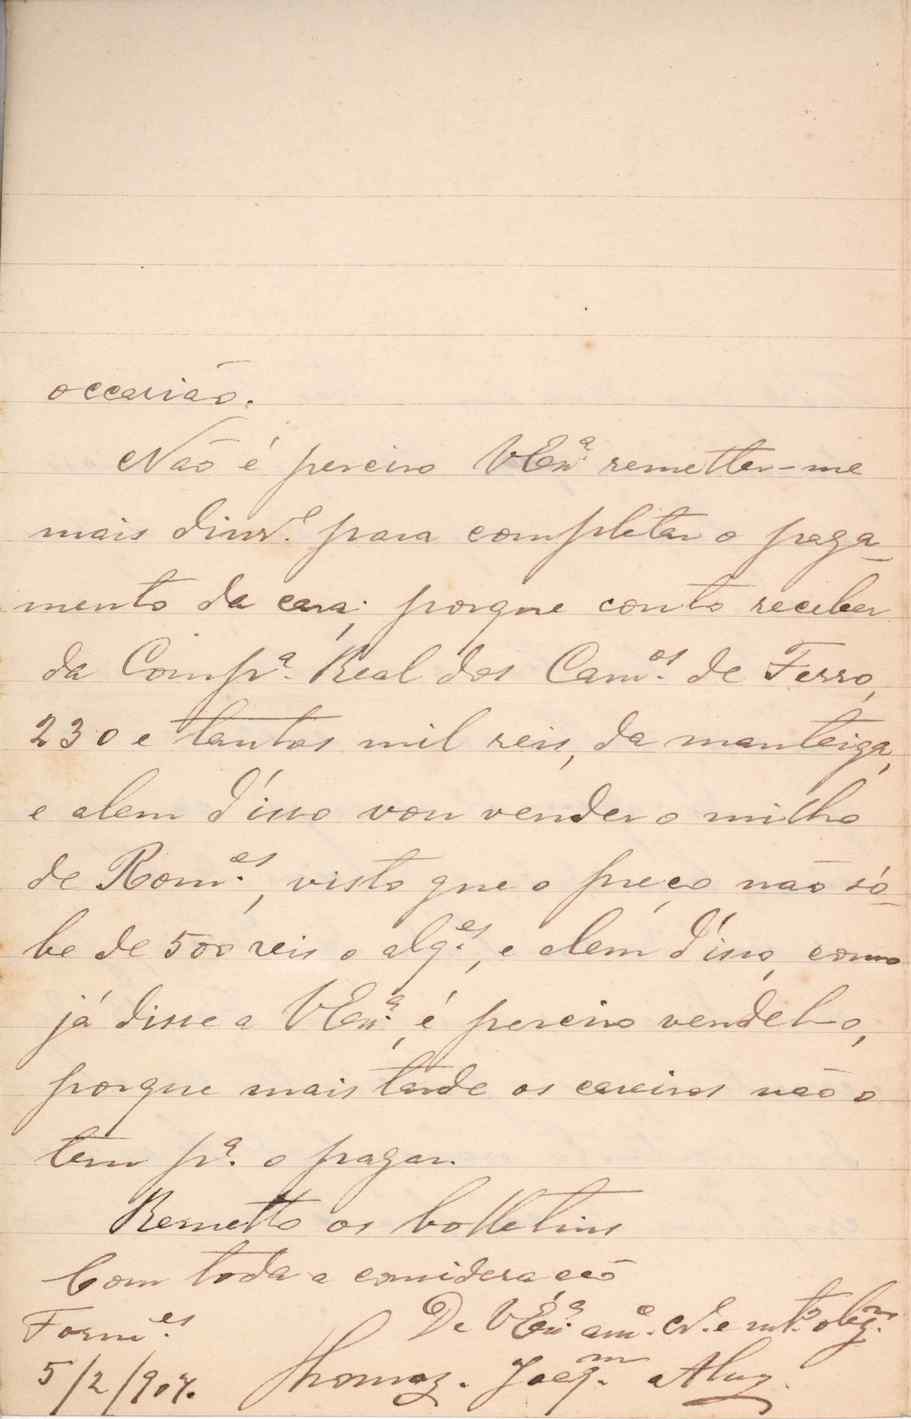 occasião.
Não é preciso VExª remetter-me
mais dinrº. para completar o paga-
mento da casa; porque conto receber
da Compª. Real dos Camos. de Ferro,
230 e tantos mil reis, da manteiga,
e alem d'isso vou vender o milho
de Romes., visto que o preço não só-
be de 500 reis o alqes., e alem d'isso, como
já disse a VExª., é preciso vendel-o,
porque mais tarde os caseiros não o
tem pª. o pagar.
Remetto os bolletins
Com toda a consideração
De VExª. amº. crº. e mtº. obgm.
Formes.
5/2/907. Thomaz. Joaqm.